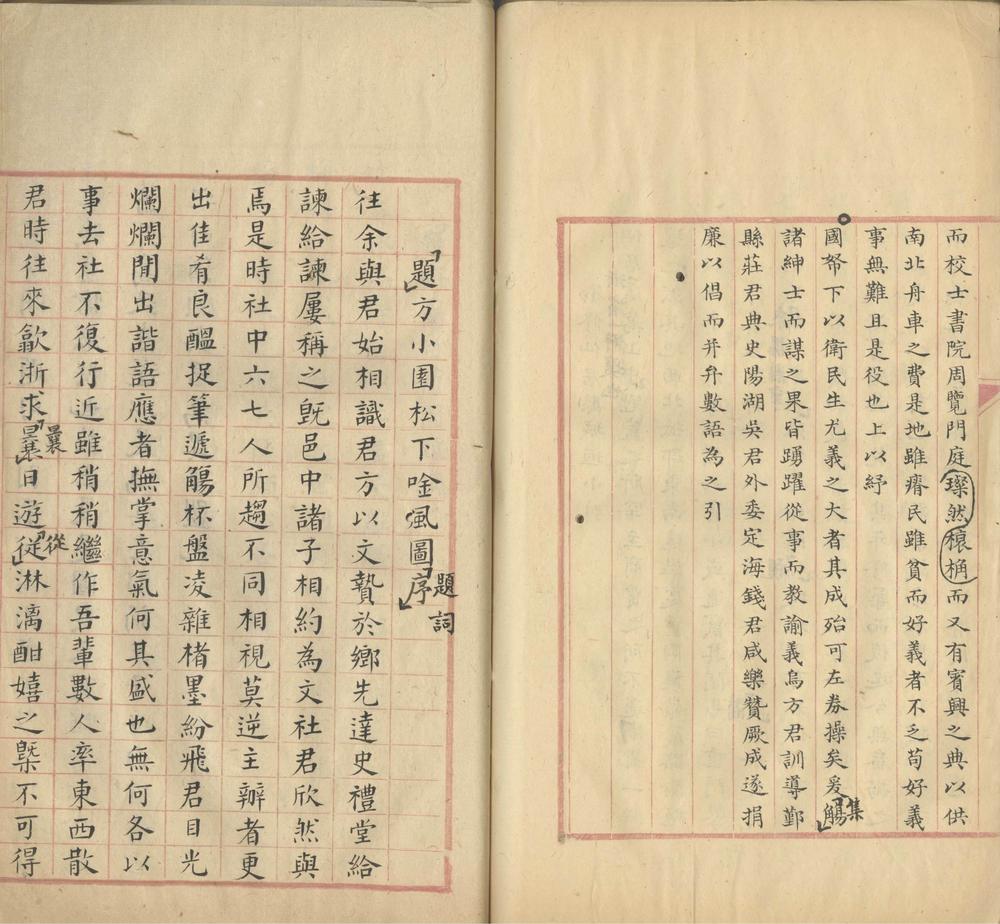 而校士書院周覽門庭璨然榱桷而又有賓興之典以供
南北舟車之費是地雖瘠民雖貧而好義者不乏苟好義
事無難且是役也上以紓
國帑下以衛民生尤義之大者其成殆可左券操矣爰觴集
諸紳士而謀之果皆踴躍從事而教諭義烏方君訓導鄞
縣莊君典史陽湖吳君外委定海錢君咸樂贊厥成遂捐
廉以倡而并弁數語為之引
題方小園松下唫風圖序題詞
往余與君始相識君方以文贄於鄉先達史禮堂給
諫給諫屢稱之旣邑中諸子相約為文社君欣然與
焉是時社中六七人所趨不同相視莫逆主辦者更
出佳肴良醞捉筆遞觴杯盤凌雜楮墨紛飛君目光
爛爛閒出諧語應者撫掌意氣何其盛也無何各以
事去社不復行近雖稍稍繼作吾輩數人率東西散
君時往來歙浙求曩曩日遊從從淋漓酣嬉之槩不可得